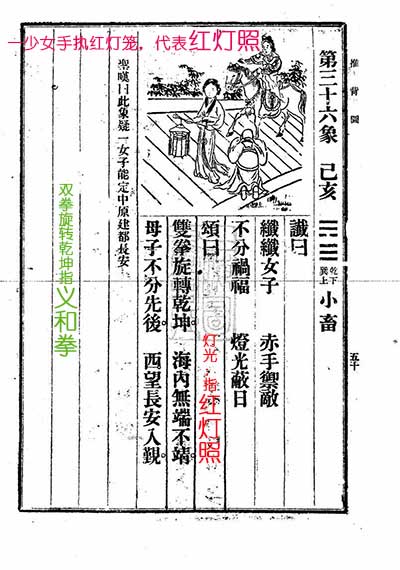 一少女手执红灯笼，代表红灯照
推背圖
五十
第三十六象 己亥 ䷈ 乾下 巽上 小畜
讖曰
纖纖女子 赤手禦敵
不分禍福 燈光蔽日
灯光，指红灯照
頌曰
雙拳旋轉乾坤。海內無端不靖。
母子不分先後。西望長安入覲。
聖嘆曰此象疑一女子能定中原建都長安
双拳旋转乾坤指义和拳